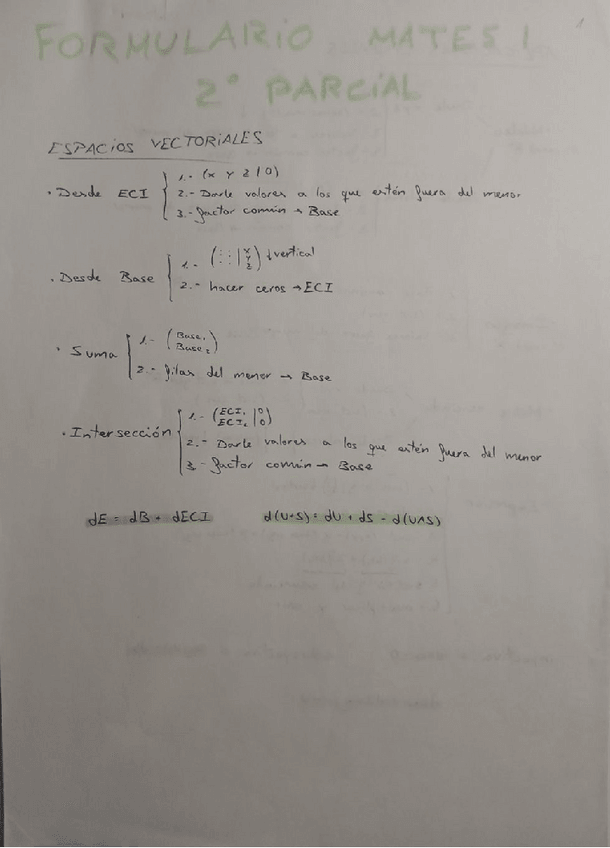 1
FORMULARIO MATES 1
2º PARCIAL
ESPACIOS VECTORIALES
· Desde ECI
1.- (x y z / 0)
2.- Darle valores a los que estén fuera del menor
3.- factor común → Base
· Desde Base
1.- (⋮⋮⋮ | x y z) ↓ vertical
2.- hacer ceros → ECI
· Suma
1.- (Base₁
Base₂)
2.- filas del menor → Base
· Intersección
1.- (ECI₁ | 0
ECI₂ | 0)
2.- Darle valores a los que estén fuera del menor
3.- factor común → Base
dE = dB + dECI d(U+S) = dU + dS - d(U∧S)